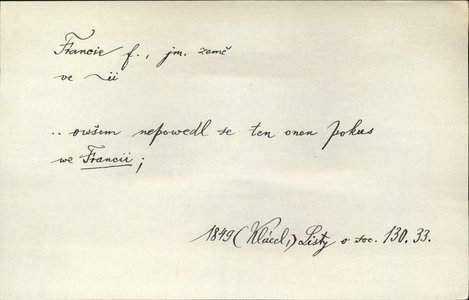 Francie f., jm. země
ve ~ii
.. owšem nepowedl se ten onen pokus
we Francii;
1849 (Klácel,) Listy o soc. 130. 33.